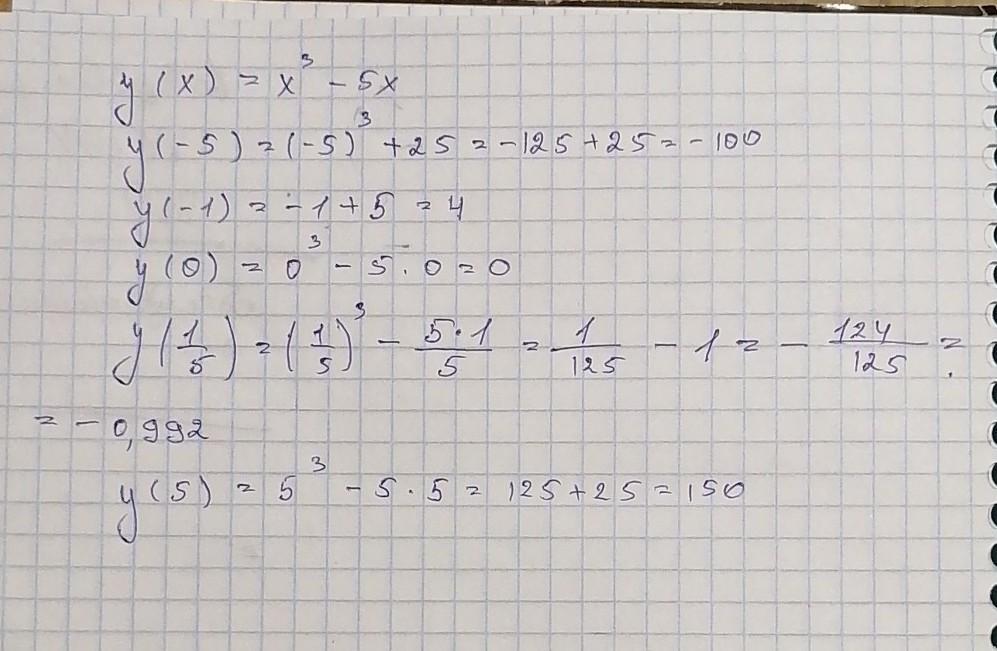 y(x) = x³ - 5x
y(-5) = (-5)³ + 25 = -125 + 25 = -100
y(-1) = -1 + 5 = 4
y(0) = 0³ - 5 · 0 = 0
y(1/5) = (1/5)³ - 5·1/5 = 1/125 - 1 = - 124/125 =
= - 0,992
y(5) = 5³ - 5 · 5 = 125 + 25 = 150